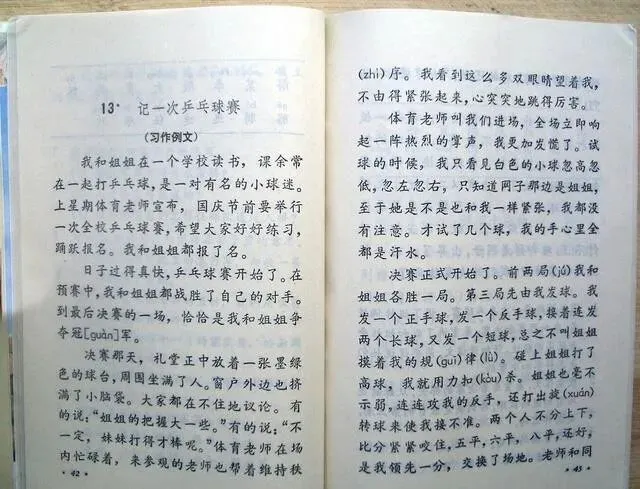 13* 记一次乒乓球赛
(习作例文)
我和姐姐在一个学校读书，课余常
在一起打乒乓球，是一对有名的小球迷。
上星期体育老师宣布，国庆节前要举行
一次全校乒乓球赛，希望大家好好练习，
踊跃报名。我和姐姐都报了名。
日子过得真快，乒乓球赛开始了。在
预赛中，我和姐姐都战胜了自己的对手。
到最后决赛的一场，恰恰是我和姐姐争
夺冠[guàn]军。
决赛那天，礼堂正中放着一张墨绿
色的球台，周围坐满了人。窗户外边也挤
满了小脑袋。大家都在不住地议论。有
的说：“姐姐的把握大一些。”有的说：“不
一定，妹妹打得才棒呢。”体育老师在场
内忙碌着，来参观的老师也帮着维持秩
·42·
(zhì)序。我看到这么多双眼睛望着我，
不由得紧张起来，心突突地跳得厉害。
体育老师叫我们进场，全场立即响
起一阵热烈的掌声，我更加发慌了。试
球的时候，我只看见白色的小球忽高忽
低，忽左忽右，只知道网子那边是姐姐，
至于她是不是也和我一样紧张，我都没
有注意。才试了几个球，我的手心里全
都是汗水。
决赛正式开始了。前两局(jú)我和
姐姐各胜一局。第三局先由我发球。我
发一个正手球，发一个反手球，接着连发
两个长球，又发一个短球，总之不叫姐姐
摸着我的规(guī)律(lǜ)。碰上姐姐打了
高球，我就用力扣(kòu)杀。姐姐也毫不
示弱，连连攻我的反手，还打出旋(xuán)
转球来使我接不准。两个人不分上下，
比分紧紧咬住，五平，六平，八平，还好，
是我领先一分，交换了场地。老师和同
·43·